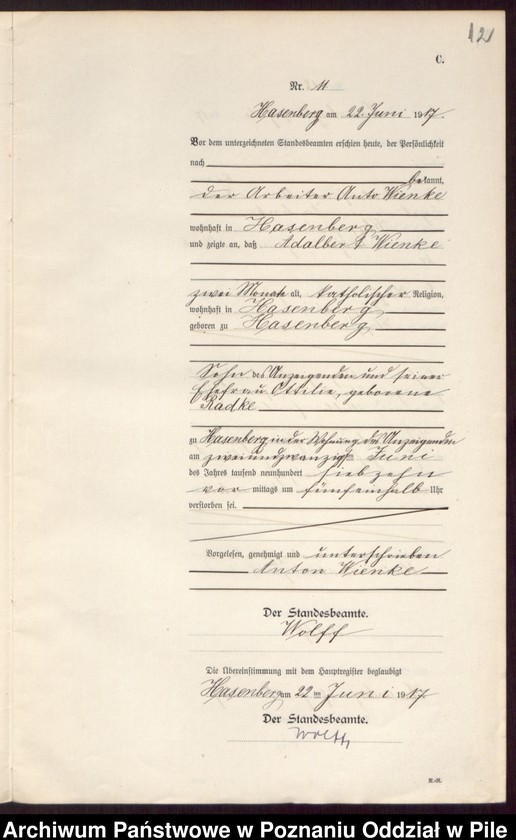 12
C.
Nr. 11
Hasenberg am 22. Juni 1917.
Vor dem unterzeichneten Standesbeamten erschien heute, der Persönlichkeit
nach
bekannt,
der Arbeiter Anto Wienke
wohnhaft in Hasenberg
und zeigte an, daß Adalbert Wienke
zwei Monate alt, katholischer Religion,
wohnhaft in Hasenberg
geboren zu Hasenberg
Sohn des Anzeigenden und seiner
Ehefrau Ottilie, geborene
Radke
zu Hasenberg in der Wohnung des Anzeigenden
am zweiundzwanzigsten Juni
des Jahres tausend neunhundert siebzehn
vor mittags um fünfeinhalb Uhr
verstorben sei.
Vorgelesen, genehmigt und unterschrieben
Anton Wienke
Der Standesbeamte.
Wolff
Die Übereinstimmung mit dem Hauptregister beglaubigt
Hasenberg am 22 ten Juni 1917.
Der Standesbeamte.
Wolff
Archiwum Państwowe w Poznaniu Oddział w Pile